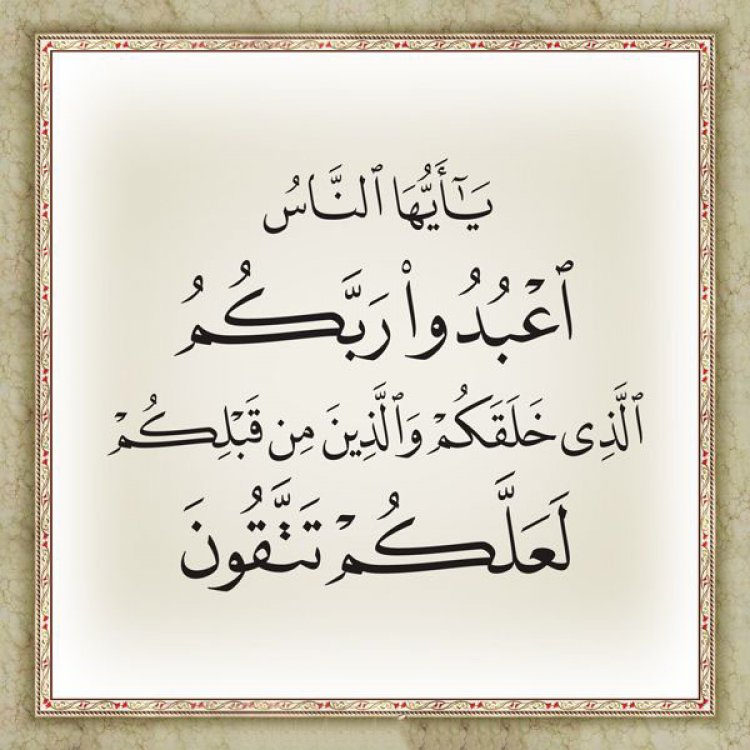 يَٰٓأَيُّهَا ٱلنَّاسُ
ٱعْبُدُوا۟ رَبَّكُمُ
ٱلَّذِى خَلَقَكُمْ وَٱلَّذِينَ مِن قَبْلِكُمْ
لَعَلَّكُمْ تَتَّقُونَ